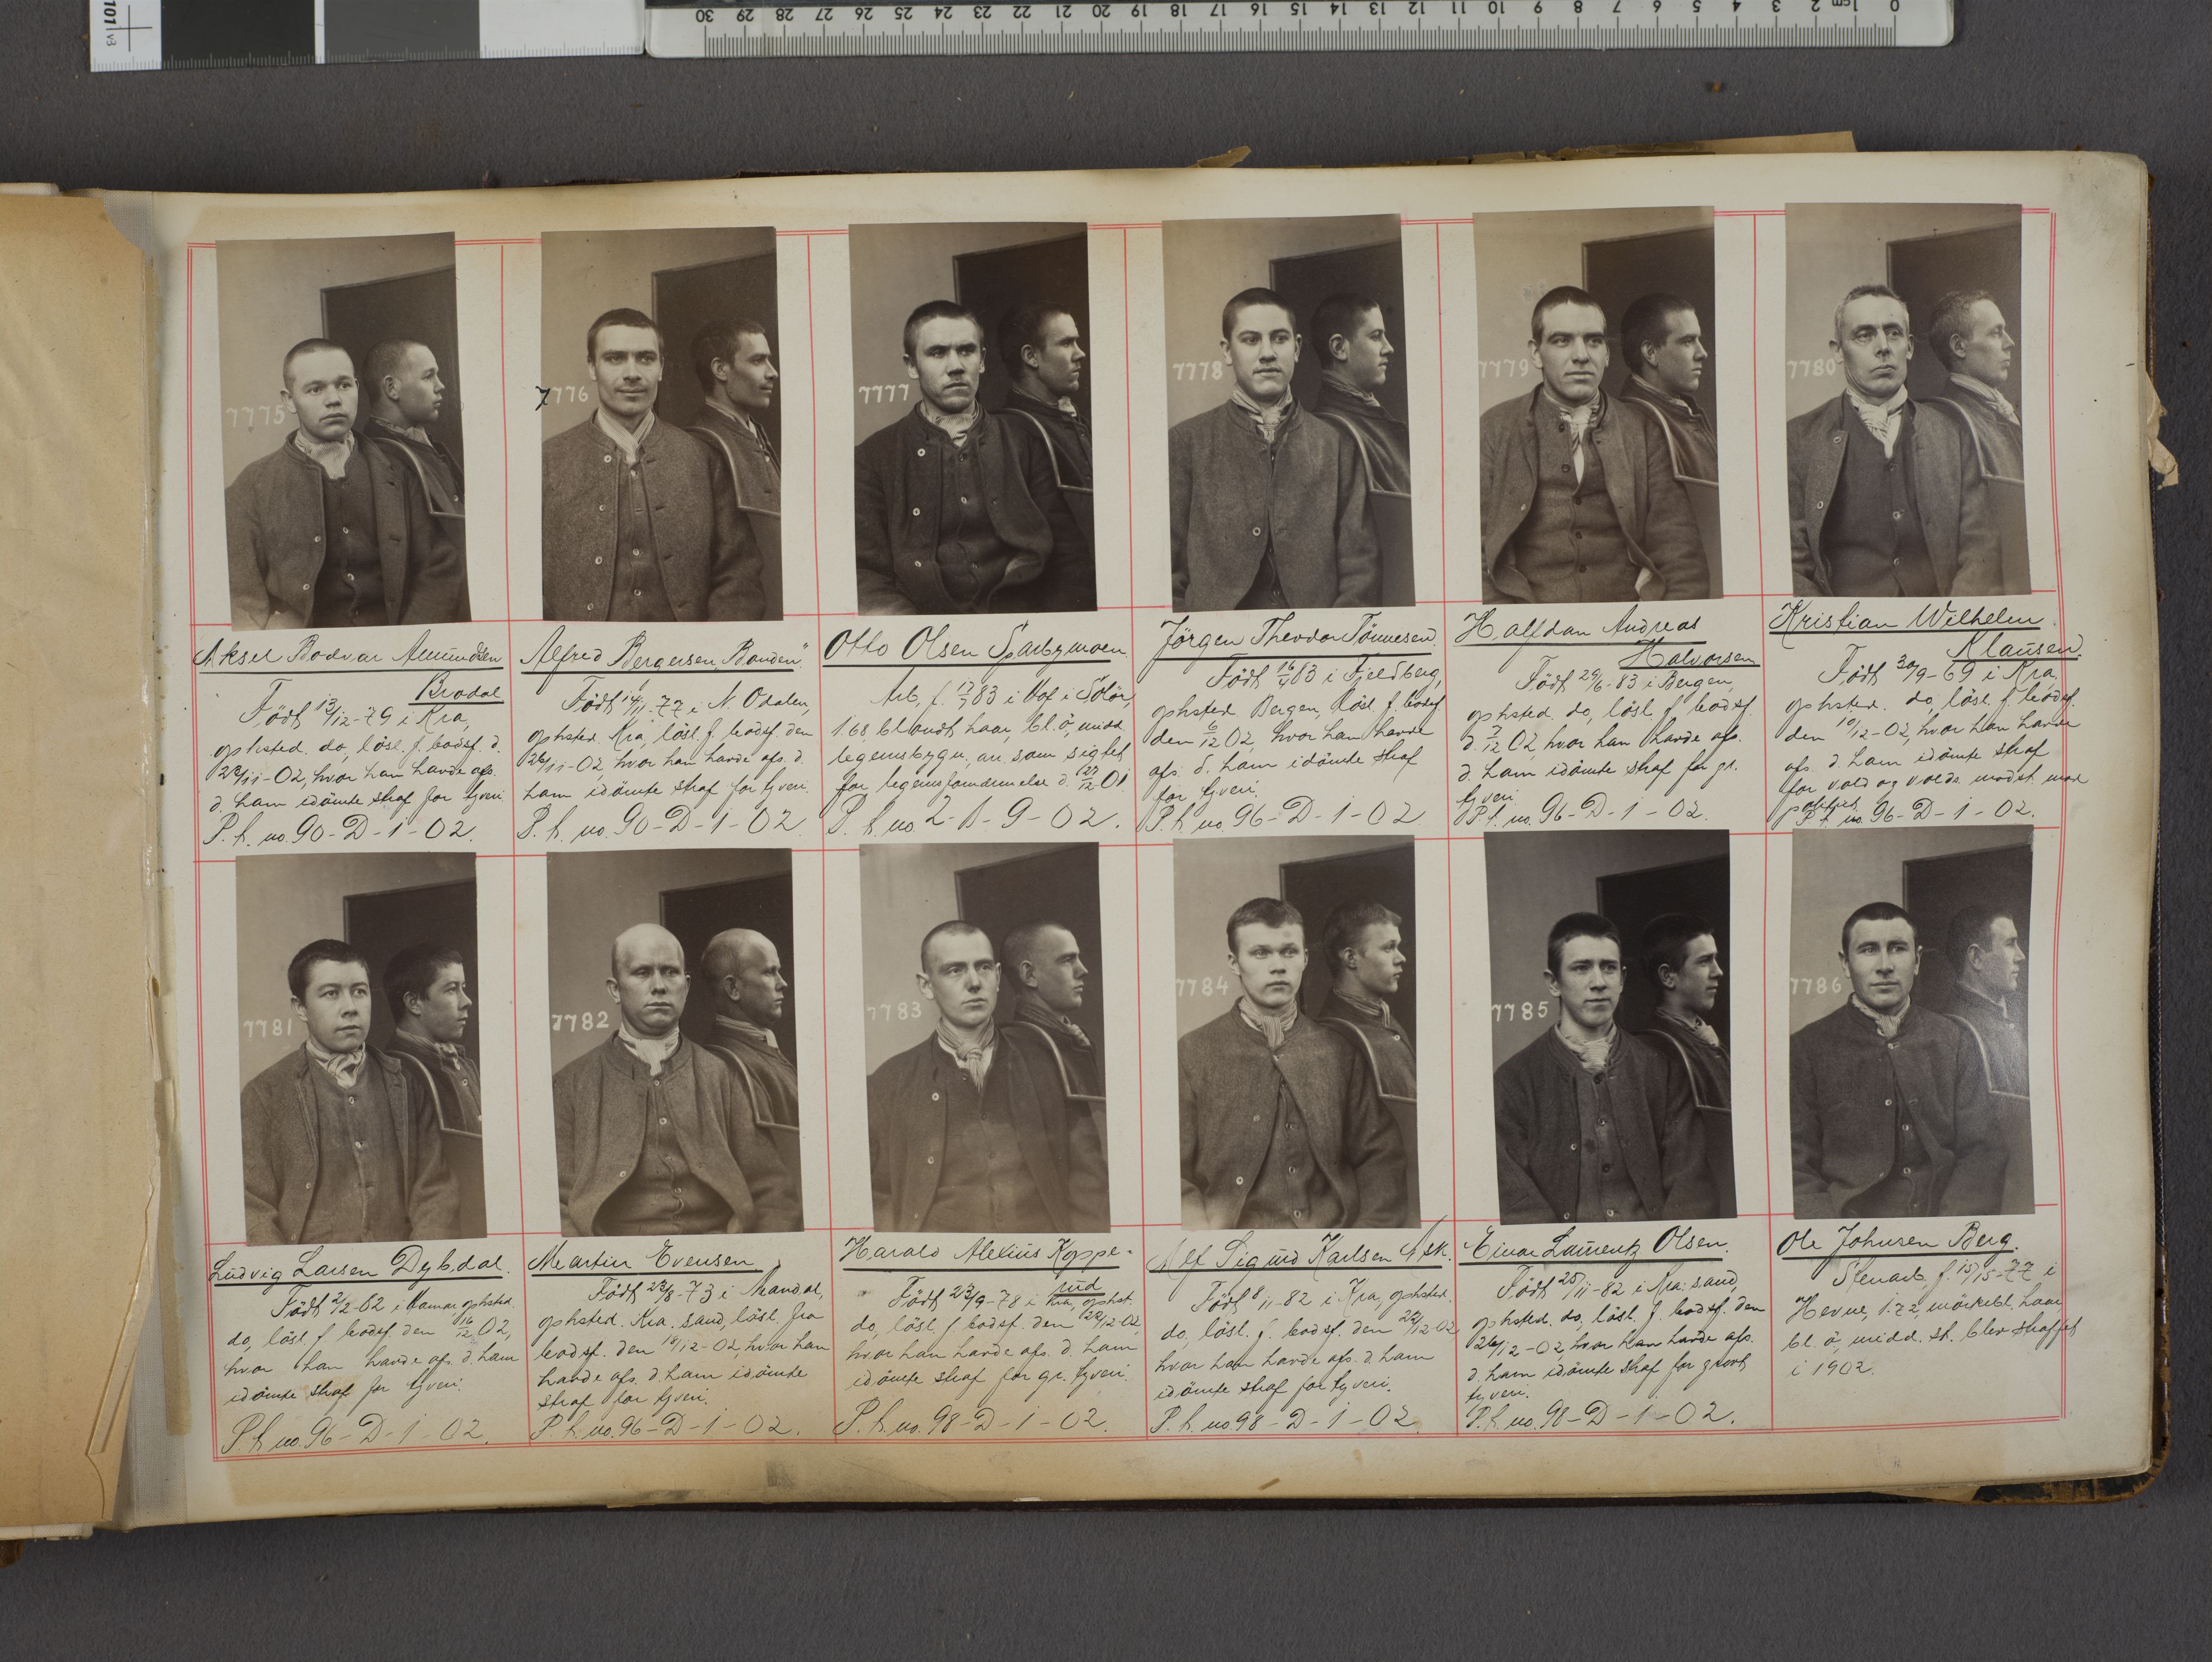 101 v3
30 29 28 27 26 25 24 23 22 21 20 19 18 17 16 15 14 13 12 11 10 9 8 7 6 5 4 3 2 1cm 0
7775
Aksel Bodvar Amundsen
Brodal
Födt 13/12-79 i Kra,
ophsted. do, lösl. f. bodsf. d.
22/11-02, hvor han havde afs.
d. ham idömte straf for tyveri
P. h. no. 90-D-1-02.
7776
Alfred Bergersen "Bonden"
Födt 14/11-77 i N. Odalen,
ophsted. Kra, lösl. f. bodsf. den
26/11-02, hvor han havde afs. d.
ham idömte straf for tyveri.
P. h. no. 90-D-1-02
7777
Otto Olsen Sparbymoen
Arb, f. 17/7 83 i Hof i Solör,
1.68, blondt haar, bl. ö, midd.
legemsbygn, an. som sigtet
for legemsfornærmelse d. 27/12 01
P. h. no. 2-B-9-02.
7778
Jörgen Theodor Tönnesen
Födt 16/4 83 i Fjeldberg,
ophsted. Bergen, lösl. f. bodsf
den 6/12 02, hvor han havde
afs. d. ham idömte straf
for tyveri.
P. h. no. 96-D-1-02
7779
Halfdan Andreas
Halvorsen
Födt 29/6-83 i Bergen,
ophsted. do, lösl. f. bodsf.
d. 7/12 02, hvor han havde afs.
d. ham idömte straf for gr.
tyveri
P. h. no. 96-D-1-02.
7780
Kristian Wilhelm
Klausen.
Födt 30/9-69 i Kra,
ophsted. do, lösl. f. bodsf.
den 10/12-02, hvor han havde
afs. d. ham idömte straf
for vold og volds. modst. mod
politiet
P. h. no. 96-D-1-02.
7781
Ludvig Larsen Dybdal.
Födt 2/2-62 i Hamar, ophsted.
do, lösl. f. bodsf. den 16/12 02,
hvor han havde afs. d. ham
idömte straf for tyveri.
P. h. no. 96-D-1-02.
7782
Martin Evensen
Födt 23/8-73 i Mandal,
ophsted. Kra. sand, lösl. fra
bodsf. den 18/12-02, hvor han
havde afs. d. ham idömte
straf for tyveri.
P. h. no. 96-D-1-02.
7783
Harald Alexius Koppe-
rud
Födt 23/9-78 i Kra, ophst.
do, lösl. f. bodsf. den 22/12-02,
hvor han havde afs. d. ham
idömte straf for gr. tyveri.
P. h. no. 98-D-1-02.
7784
Alf Sigurd Karlsen Ask.
Födt 8/11-82 i Kra, ophsted.
do, lösl. f. bodsf. den 22/12-02
hvor han havde afs. d. ham
idömte straf for tyveri.
P. h. no 98-D-1-02
7785
Einar Laurentz Olsen.
Födt 25/11-82 i Kra: sand,
ophsted. do, lösl. f. bodsf. den
26/12-02, hvor han havde afs.
d. ham idömte straf for grovt
tyveri.
P. h. no. 98-D-1-02.
7786
Ole Johnsen Berg.
Stenarb, f. 15/5-77 i
Hevne, 1.72, mörkebl. haar,
bl. ö, midd. st. blev straffet
i 1902.